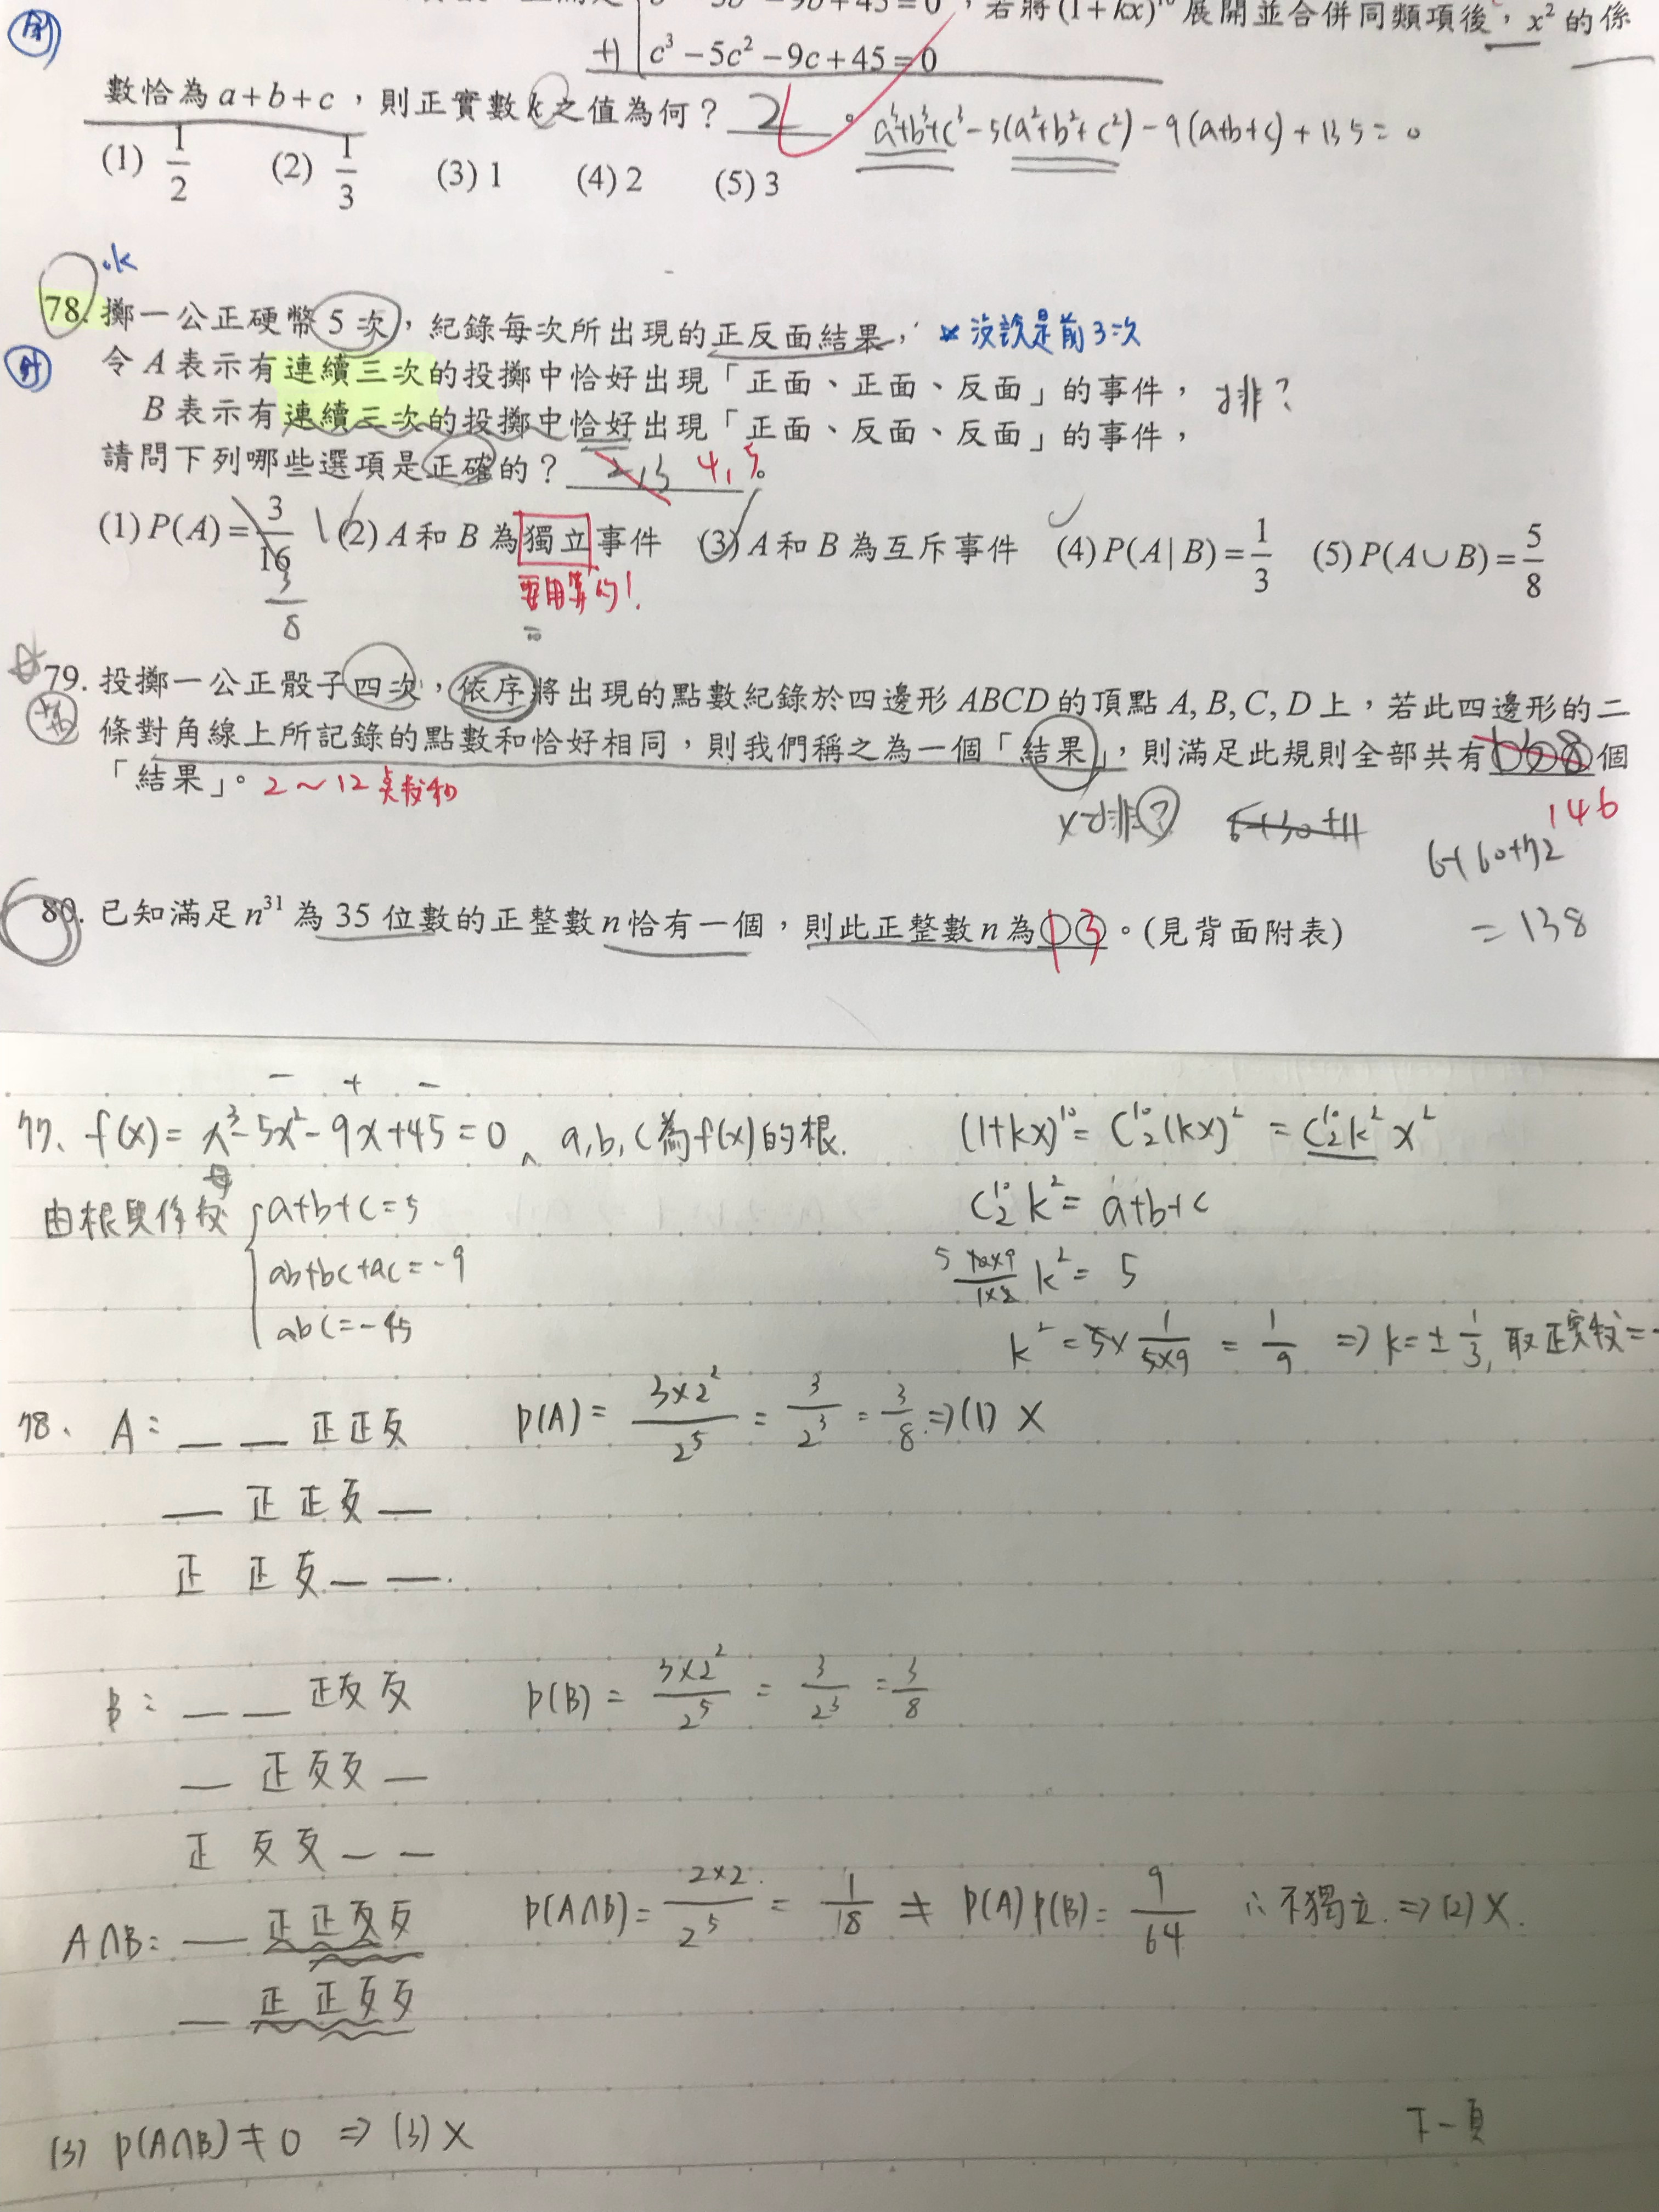 ，若將(1+kx)¹⁰展開並合併同類項後，x²的係
+) c³−5c²−9c+45=0
數恰為a+b+c，則正實數k之值為何？ 2 。 a³+b³+c³−5(a²+b²+c²)−9(a+b+c)+135=0
(1) 1/2 (2) 1/3 (3) 1 (4) 2 (5) 3
ok
78. 擲一公正硬幣5次，紀錄每次所出現的正反面結果， ★沒說是前3次
令A表示有連續三次的投擲中恰好出現「正面、正面、反面」的事件， 可排？
B表示有連續三次的投擲中恰好出現「正面、反面、反面」的事件，
請問下列哪些選項是正確的？ 2,3 4,5。
(1) P(A)=3/16 (2) A和B為獨立事件 (3) A和B為互斥事件 (4) P(A|B)=1/3 (5) P(A∪B)=5/8
3/8 要用算的！
79. 投擲一公正骰子四次，依序將出現的點數紀錄於四邊形ABCD的頂點A, B, C, D上，若此四邊形的二
條對角線上所記錄的點數和恰好相同，則我們稱之為一個「結果」，則滿足此規則全部共有138個
「結果」。 2～12點數和 146
x可排？ 6+30+11 6+60+72
=138
80. 已知滿足n³¹為35位數的正整數n恰有一個，則此正整數n為①③。(見背面附表)
1 3
− + −
77、f(x)=x³−5x²−9x+45=0、a,b,c為f(x)的根. (1+kx)¹⁰=C¹⁰₂(kx)²=C¹⁰₂k²x²
由根與係數 { a+b+c=5 C¹⁰₂k²=a+b+c
ab+bc+ac=−9 5 10×9/1×2 k²=5
abc=−45 k²=5×1/5×9=1/9 ⇒k=±1/3, 取正實數=
78、A：_ _ 正正反 P(A)=3×2²/2⁵=3/2³=3/8⇒(1) X
_ 正正反 _
正 正反 _ _.
B：_ _ 正反反 P(B)=3×2²/2⁵=3/2³=3/8
_ 正反反 _
正 反反 _ _
A∩B：_ 正正反反 P(A∩B)=2×2/2⁵=1/18≠P(A)P(B)=9/64 ∴不獨立.⇒(2) X.
_ 正正反反
(3) P(A∩B)≠0 ⇒(3) X 下一頁